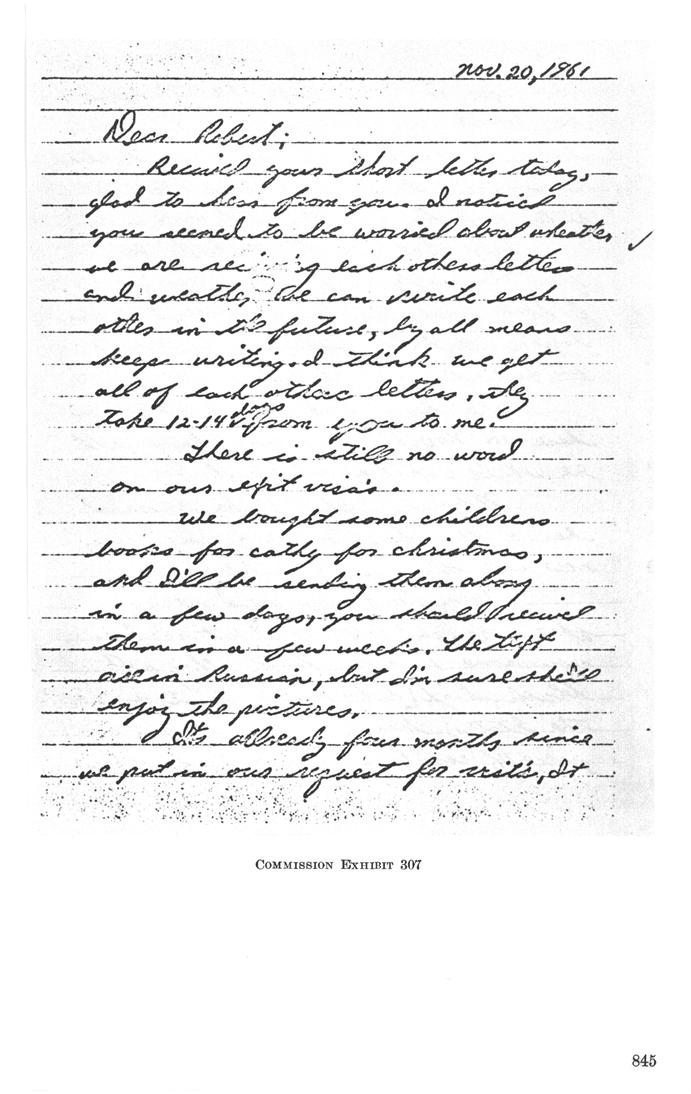 Nov. 20, 1961
Dear Robert;
Received your short letter today,
glad to hear from you. I noticed
you seemed to be worried about wheather
we are rec ing each others letters
and weather we can write each
other in the future, by all means
keep writing. I think we get
all of each others letters, they
take 12-14 days from you to me.
There is still no word
on our exit visa's.
We bought some childrens
books for cathy for christmas,
and I'll be sending them along
in a few days, you should receive
them in a few weeks. The
all in Russian, but I'm sure she'll
enjoy the pictures.
It's allready four months since
we put in our request for visa's, It
COMMISSION EXHIBIT 307
845